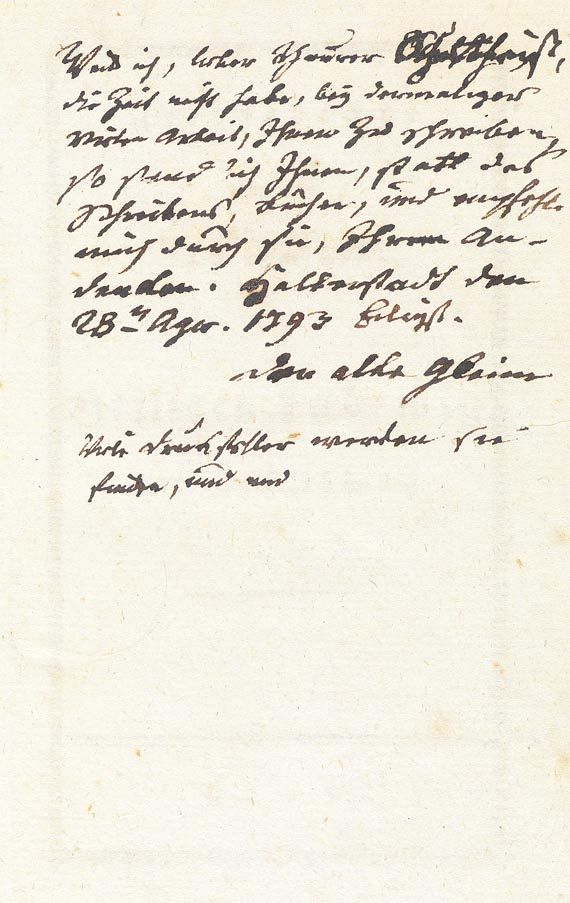 Weil ich, lieber theurer
die Zeit nicht habe, bey dermaliger
vielen Arbeit, Ihnen zu schreiben,
so send ich Ihnen, statt des
Schreibens, Bücher, und empfehle
mich durch sie, Ihrem An-
denken. Halberstadt den
28ⁿ Apr. 1793 Eiligst.
Der alte Gleim
Viele Druckfehler werden sie
finden, und und